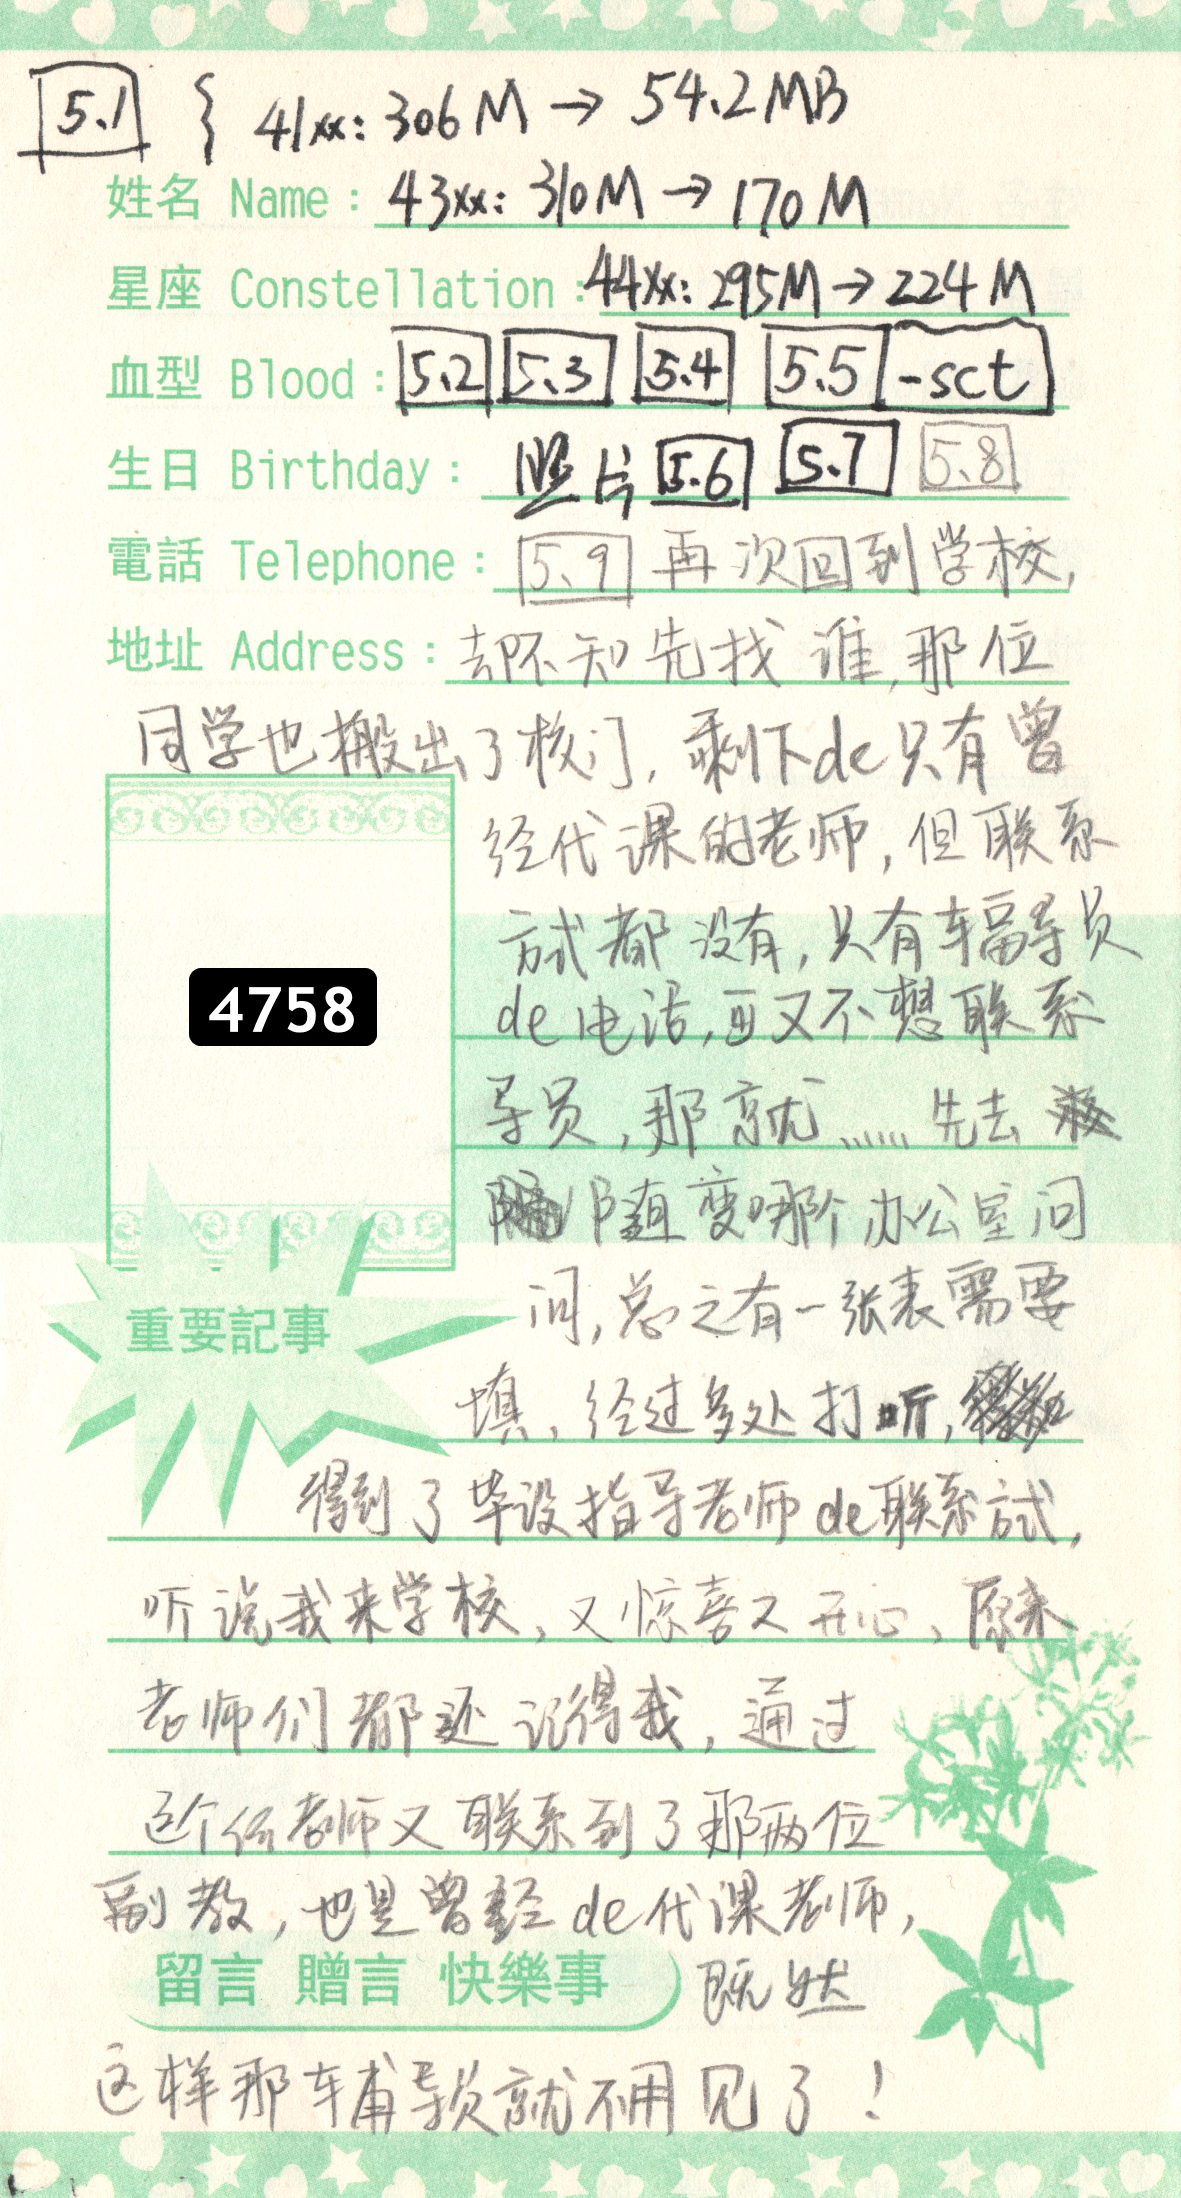 5.1 { 41xx: 306M → 54.2MB
姓名 Name: 43xx: 310M → 170M
星座 Constellation: 44xx: 295M → 224M
血型 Blood: 5.2 5.3 5.4 5.5 -sct
生日 Birthday: 照片 5.6 5.7 5.8
電話 Telephone: 5.9 再次回到学校,
地址 Address: 却不知先找谁,那位
同学也搬出了校门,剩下de只有曾
经代课的老师,但联系
方式都没有,只有辅导员
4758
de电话,可又不想联系
导员,那就......先去
随变哪个办公室问
问,总之有一张表需要
重要記事
填,经过多处打听,
得到了毕设指导老师de联系方式,
听说我来学校,又惊喜又开心,原来
老师们都还记得我,通过
这个位老师又联系到了那两位
副教,也是曾经de代课老师,
留言 贈言 快樂事 既然
这样那辅导员就不用见了!